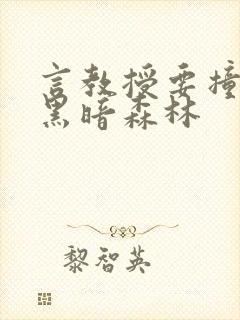 言教授要撞
黑暗森林
黎智英